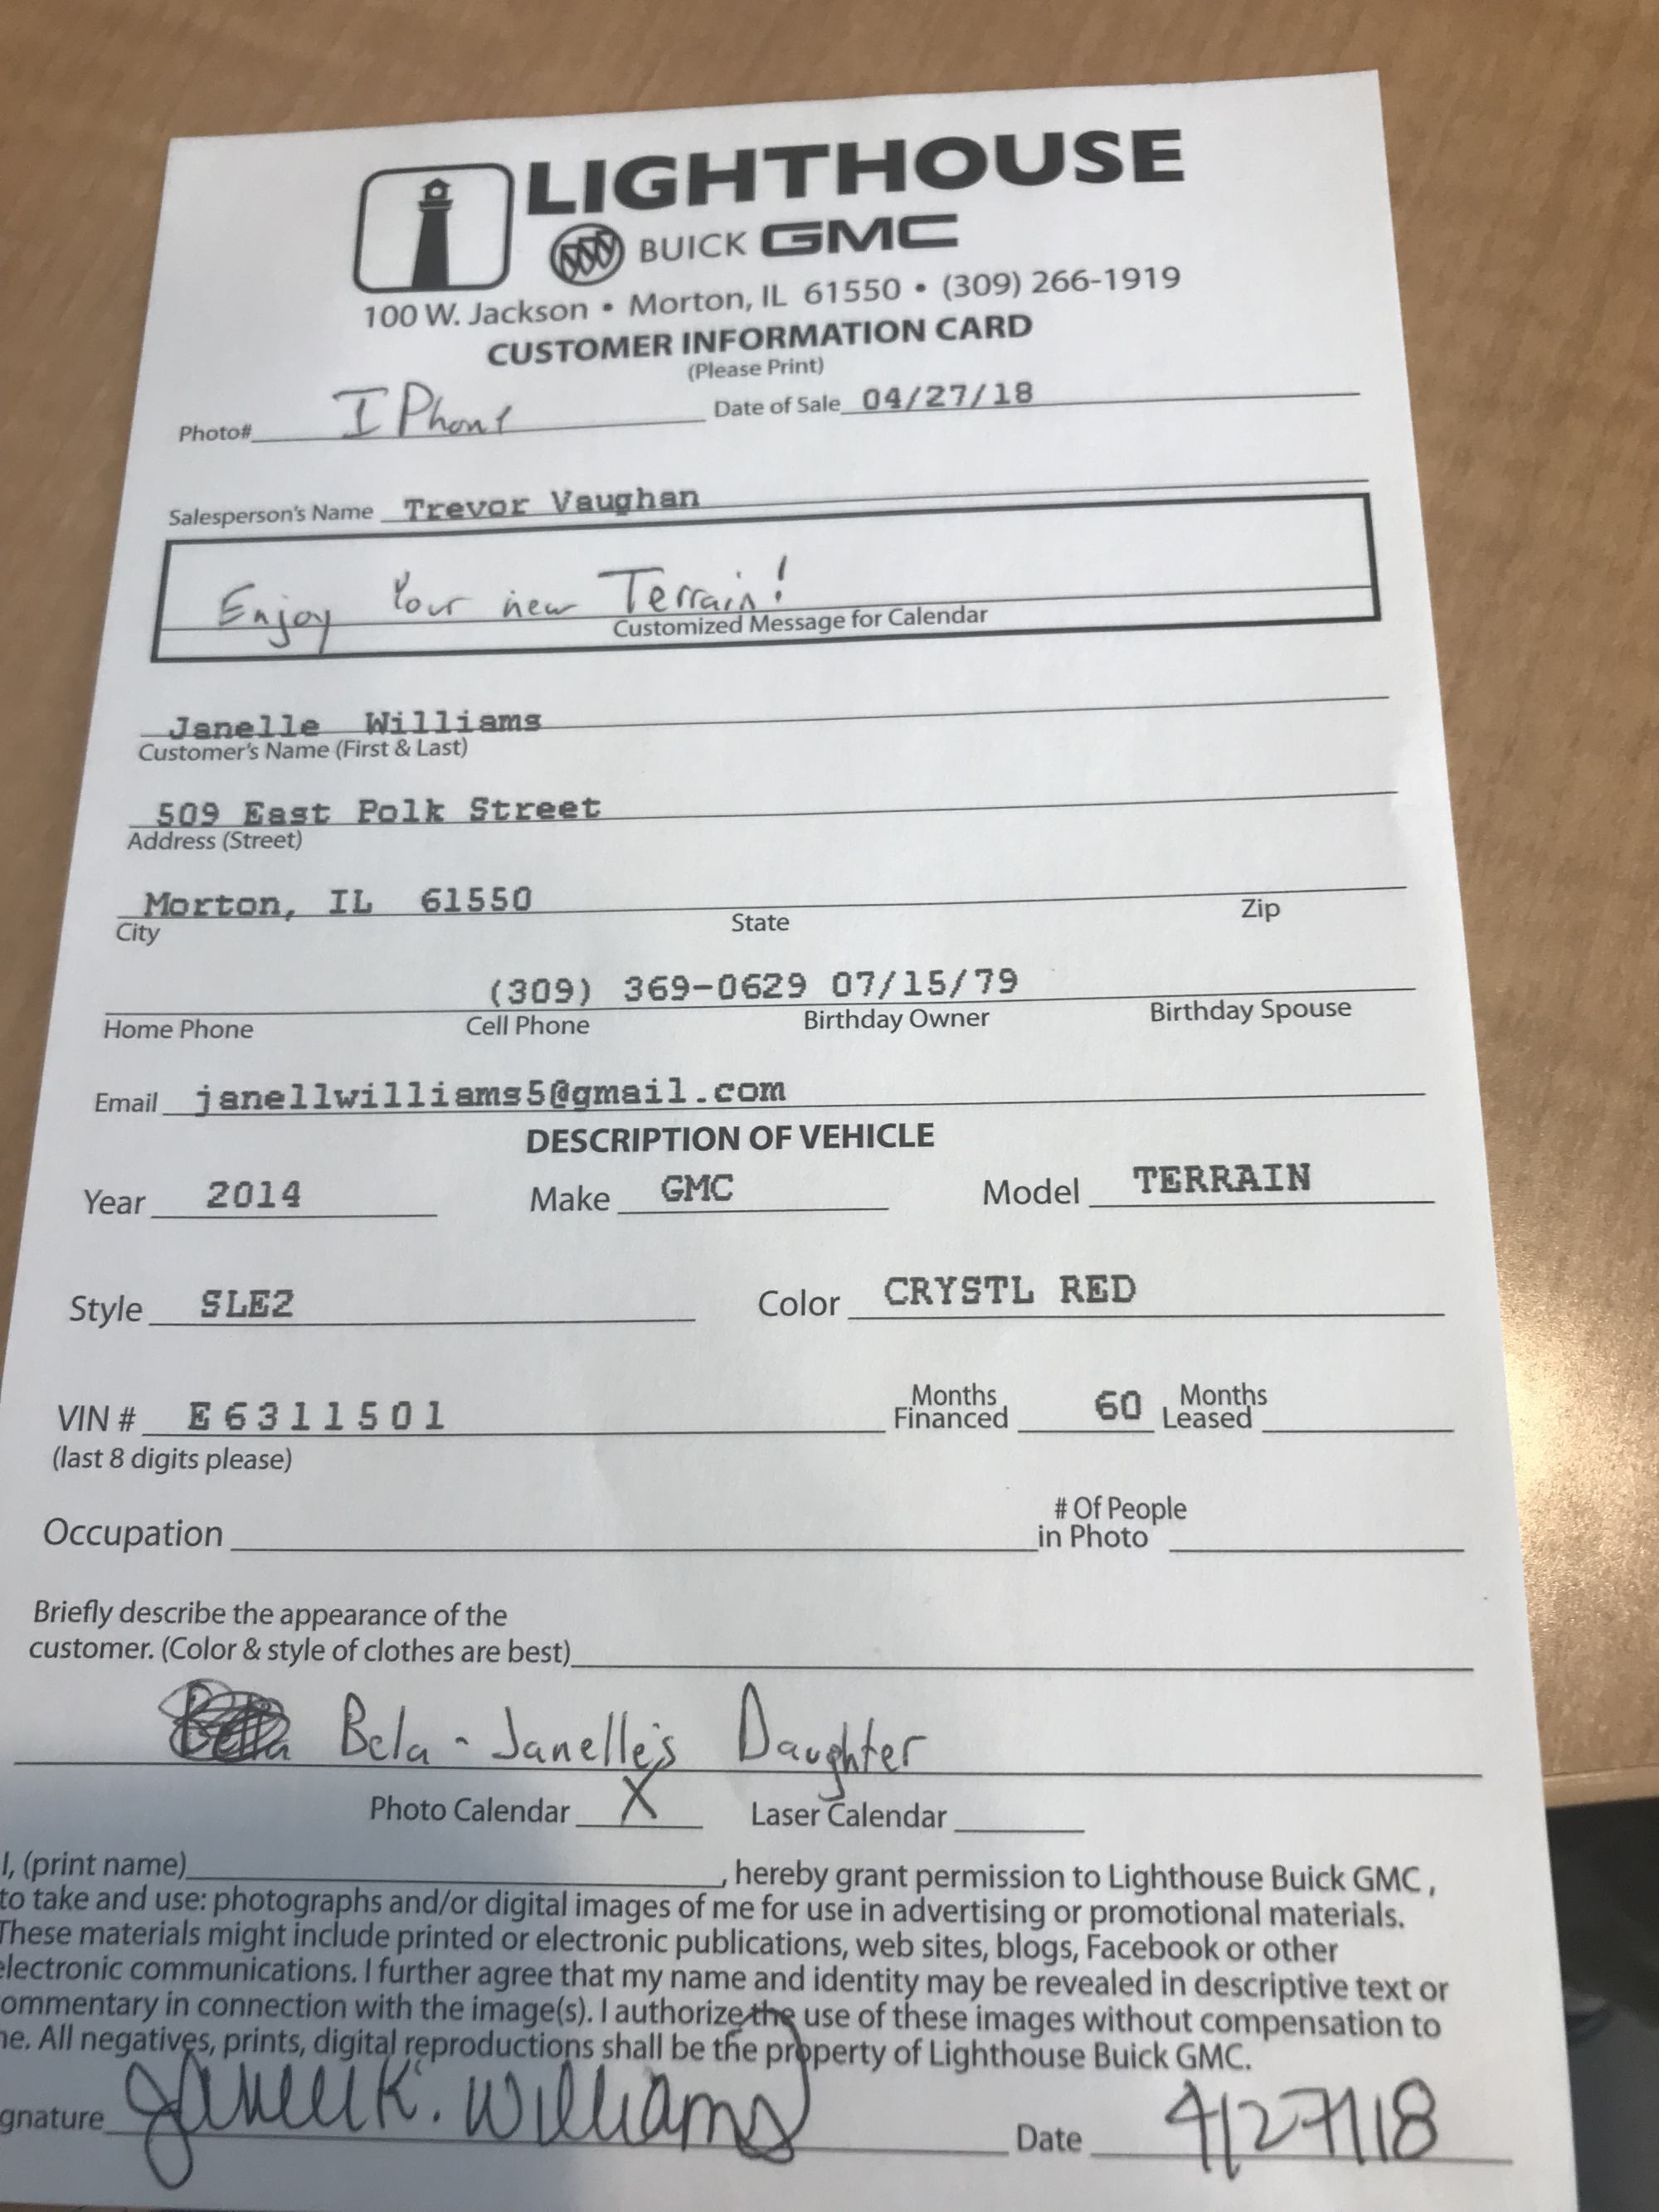 LIGHTHOUSE
BUICK GMC
100 W. Jackson • Morton, IL 61550 • (309) 266-1919
CUSTOMER INFORMATION CARD
(Please Print)
Photo# I Phone Date of Sale 04/27/18
Salesperson's Name Trevor Vaughan
Enjoy Your new Terrain!
Customized Message for Calendar
Janelle Williams
Customer's Name (First & Last)
509 East Polk Street
Address (Street)
Morton, IL 61550
City State Zip
(309) 369-0629 07/15/79
Home Phone Cell Phone Birthday Owner Birthday Spouse
Email janellwilliams5@gmail.com
DESCRIPTION OF VEHICLE
Year 2014 Make GMC Model TERRAIN
Style SLE2 Color CRYSTL RED
VIN # E6311501 Months Financed 60 Months Leased
(last 8 digits please)
Occupation # Of People in Photo
Briefly describe the appearance of the
customer. (Color & style of clothes are best)
Bela - Janelle's Daughter
Photo Calendar X Laser Calendar
I, (print name) , hereby grant permission to Lighthouse Buick GMC,
to take and use: photographs and/or digital images of me for use in advertising or promotional materials.
These materials might include printed or electronic publications, web sites, blogs, Facebook or other
electronic communications. I further agree that my name and identity may be revealed in descriptive text or
ommentary in connection with the image(s). I authorize the use of these images without compensation to
ne. All negatives, prints, digital reproductions shall be the property of Lighthouse Buick GMC.
gnature Janell K. Williams Date 4/27/18